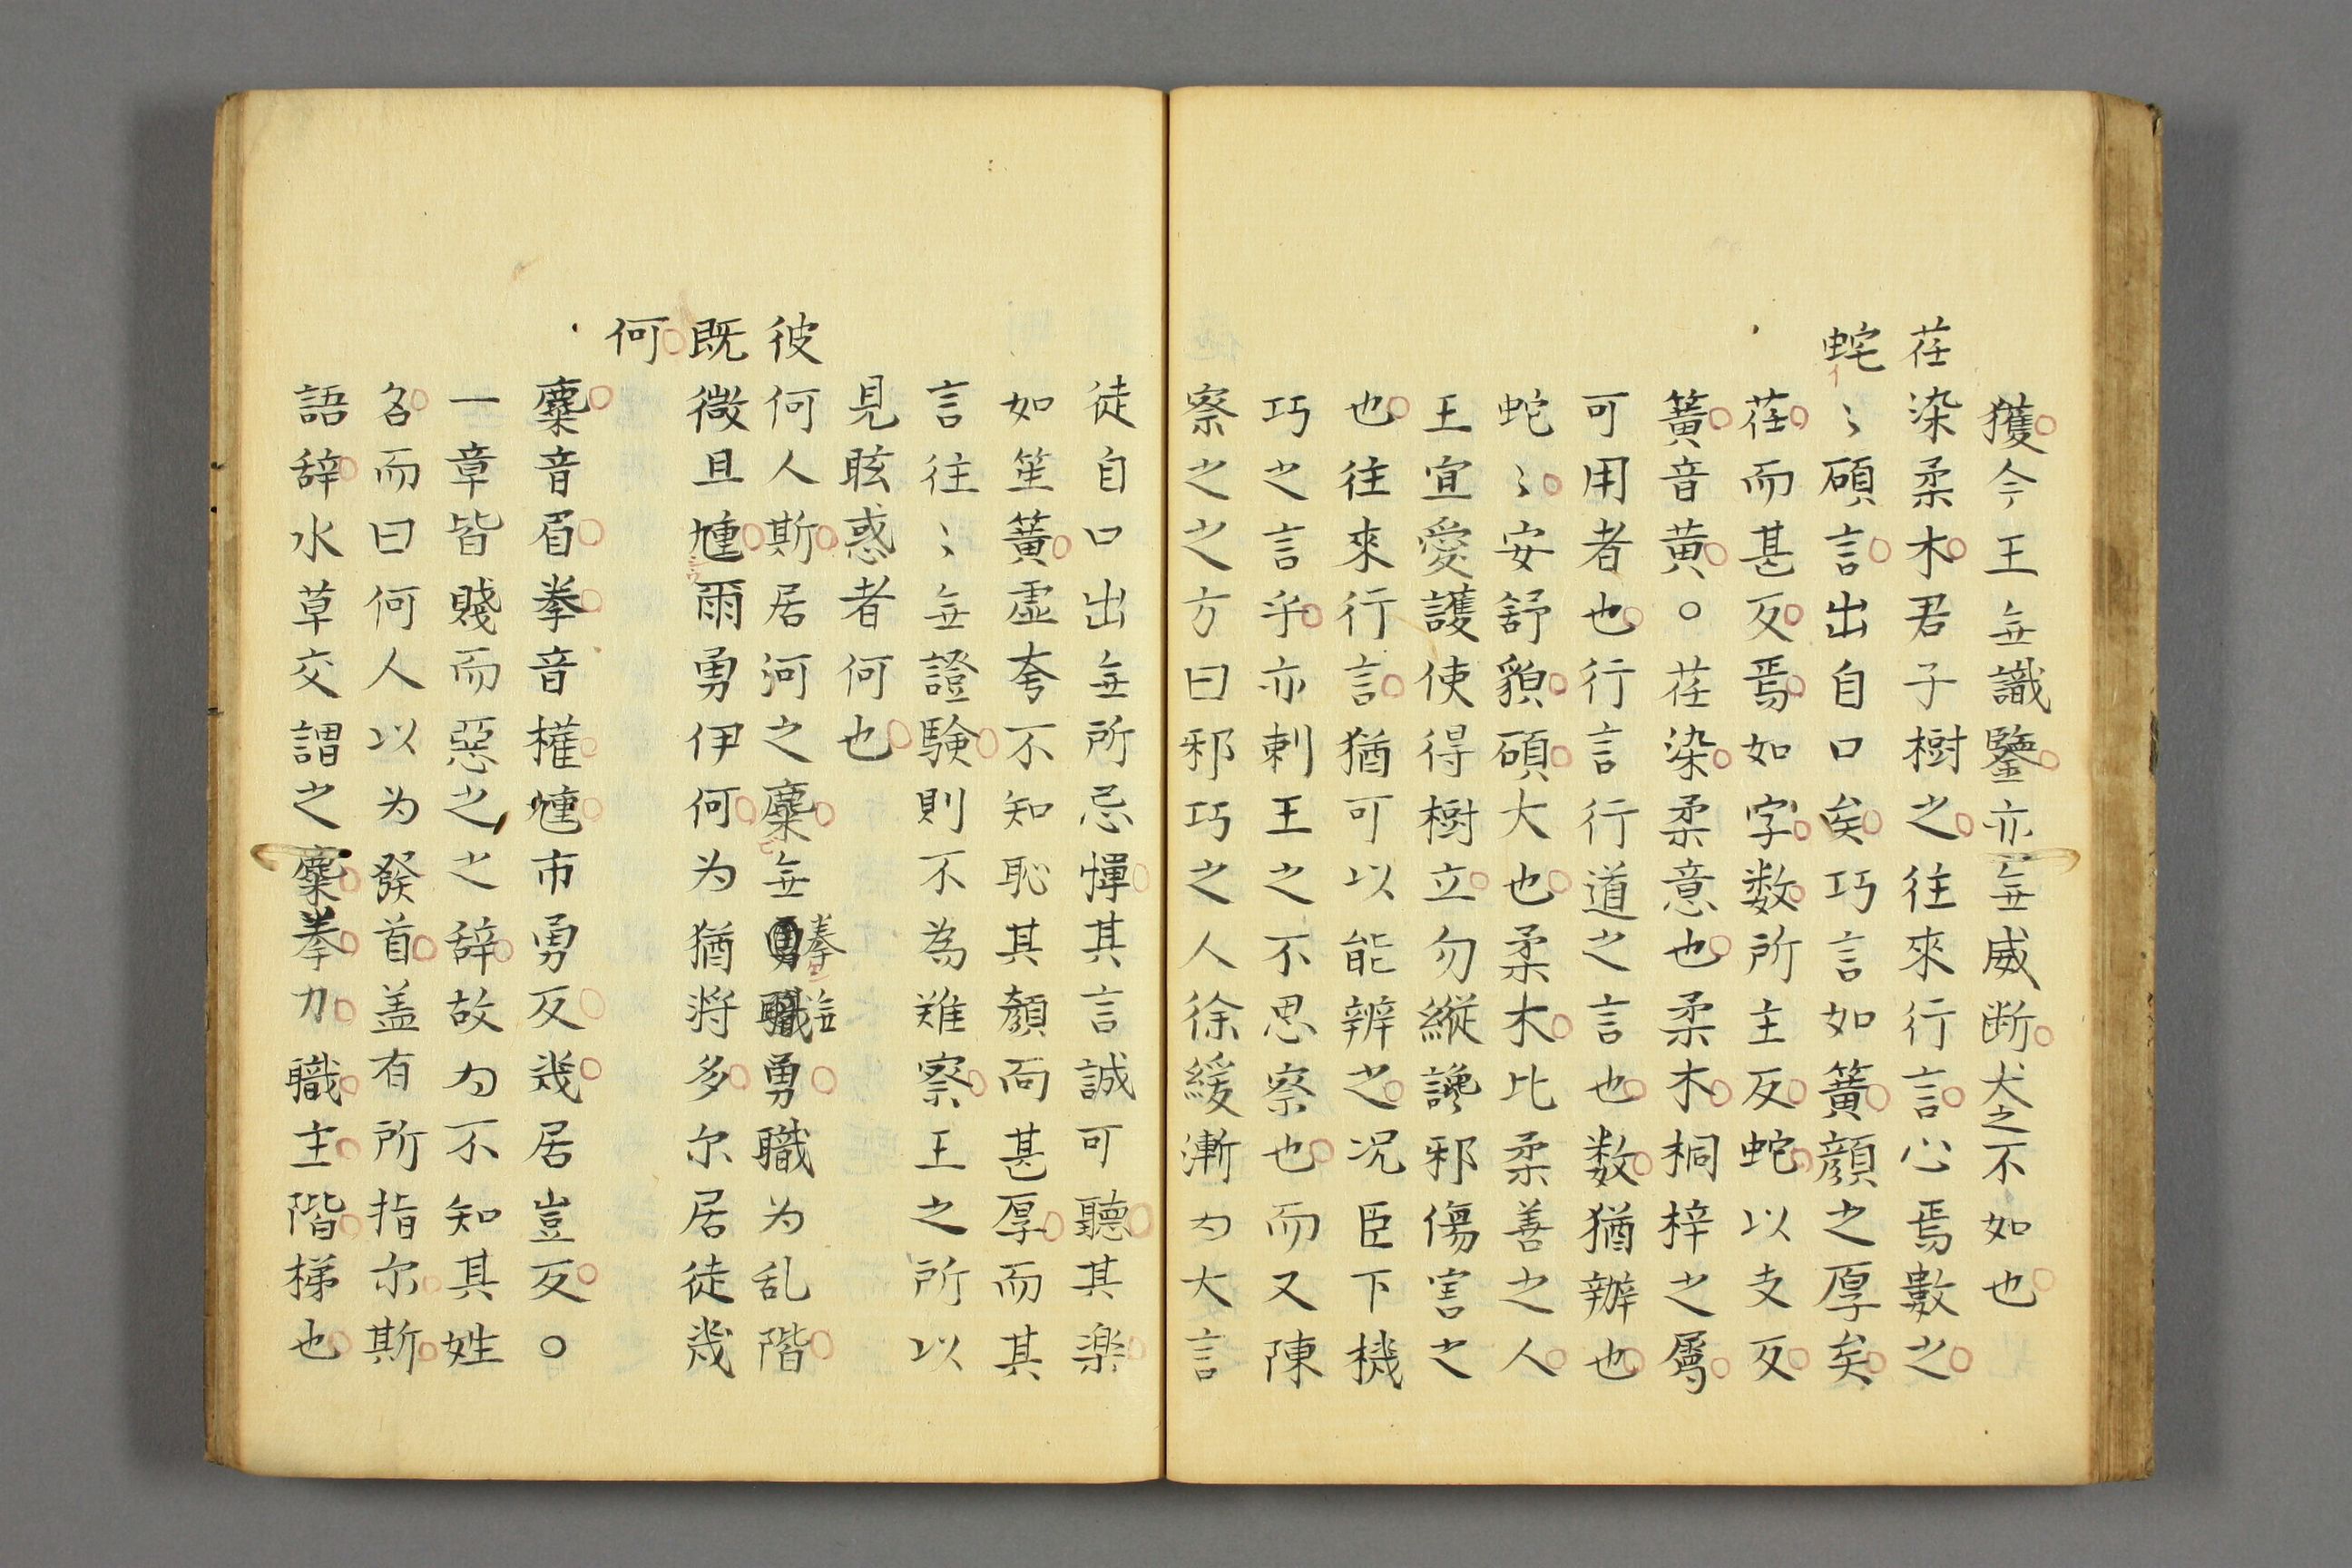 獲今王無識鑒亦無威断犬之不如也
荏染柔木君子樹之往來行言心焉數之
蛇〻碩言出自口矣巧言如簧顔之厚矣
荏而甚反焉如字数所主反蛇以支反
簧音黄○荏染柔意也柔木桐梓之屬
可用者也行言行道之言也数猶辨也
蛇〻安舒貌碩大也柔木比柔善之人
王宜愛護使得樹立勿縱讒邪傷害之
也往來行言猶可以能辨之况臣下機
巧之言乎亦刺王之不思察也而又陳
察之之方曰邪巧之人徐緩漸為大言
徒自口出無所忌憚其言誠可聽其楽
如笙簧虚夸不知恥其顏而甚厚而其
言往〻無證験則不為難察王之所以
見眩惑者何也
彼何人斯居河之麋無拳無勇職为乱階
既微且尰爾勇伊何为猶將多尔居徒幾
何
麋音眉拳音權尰市勇反幾居豈反○
一章皆賤而惡之之辞故为不知其姓
名而曰何人以为發首盖有所指尔斯
語辞水草交謂之麋拳力職主階梯也